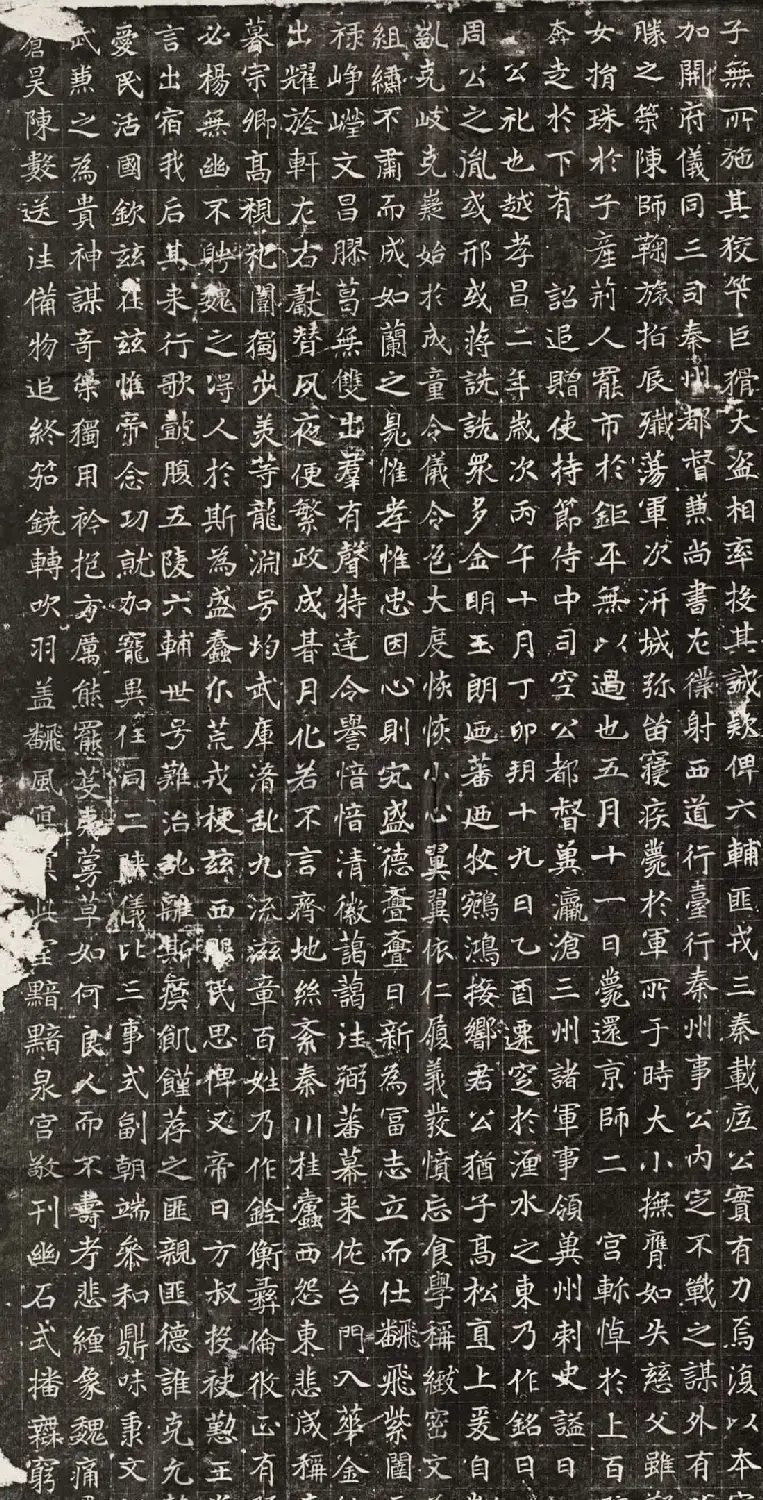 子無所施其狡笇巨猾大盗相率投其誠欵俾六輔匪戎三秦載㡯公實有力焉復以本
加開府儀同三司秦州都督兼尚書左僕射西道行臺行秦州事公内定不戰之謀外有
勝之筞陳師鞠旅指辰殲蕩軍次汧城弥留寢疾薨於軍所于時大小撫膺如失慈父雖
女捐珠於子産荊人罷市於鉅平無以過也五月十一日薨還京師二宫軫悼於上百
奔走於下有詔追贈使持節侍中司空公都督冀瀛滄三州諸軍事領冀州刺史謚曰
公礼也越孝昌二年歲次丙午十月丁卯朔十九日乙酉遷窆於湹水之東乃作銘曰
周公之胤或邢或蔣詵詵衆多金明玉朗迺蕃迺牧鵷鴻接響君公猶子高松直上爰自
齓克岐克嶷始於成童令儀令色大度恢恢小心翼翼依仁履義發憤忘食學稱緻密文
組繡不肅而成如蘭之臰惟孝惟忠因心則究盛德亹亹日新為冨志立而仕翻飛紫闥
禄崢嶸文昌膠葛無雙出羣有聲特達令譽愔愔清徽藹藹注弼蕃幕来佐台門入華金
出耀旌軒左右獻替夙夜便繁政成朞月化若不言齊地絲紊秦川桂蠹西怨東悲咸稱
暮宗卿高視祀闈獨步美等龍淵号均武庫淆乱九流滋章百姓乃作銓衡彝倫攸正有
必楊無幽不騁魏之得人於斯為盛蠢尒荒戎梗兹西服民思俾乂帝曰方叔投袂懃王
言出宿我后其来行歌皷腹五陵六輔世号難治乱離斯瘼飢饉荐之匪親匪德誰克允
愛民活國欽兹在兹惟帝念功就加寵異任同二陝儀比三事式副朝端叅和鼎味秉文
武兼之為貴神謀奇筞獨用衿抱方厲熊羆蔓草如何良人而不壽考悲纏象魏痛
倉昊陳數送注備物追終笳鐃轉吹羽盖翻風室黯黯泉宫敬刊幽石式播窮